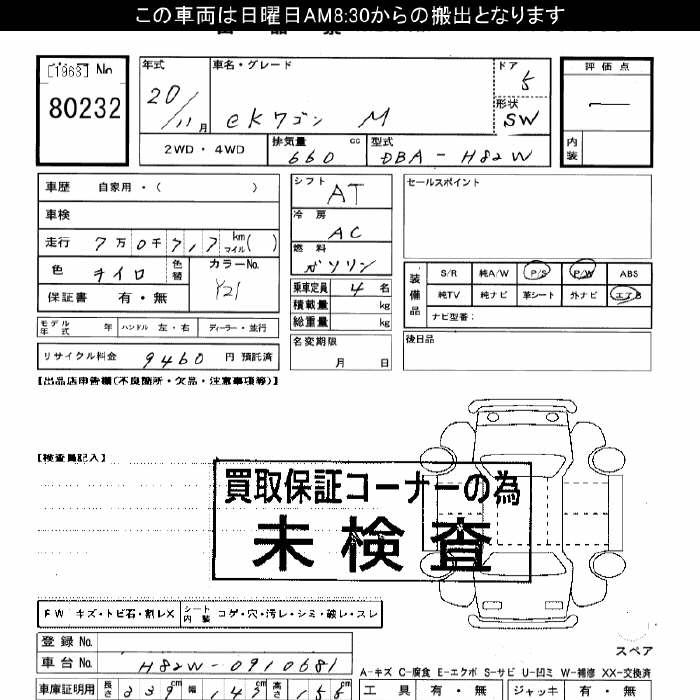 この車両は日曜日AM8:30からの搬出となります
[1963] No
80232
年式
20/11月
車名・グレード
eKワゴン M
ドア
5
形状
SW
評価点
内装
2WD・4WD
排気量 660 cc
型式 DBA-H82W
車歴 自家用・( )
車検
走行 7万0千717 km マイル( )
色 キイロ 色替
カラーNo. Y21
保証書 有・無
モデル年式 年 ハンドル 左・右 ディーラー・並行
リサイクル料金 9460 円 預託済
シフト AT
冷房 AC
燃料 ガソリン
乗車定員 4 名
積載量 kg
総重量 kg
名変期限
月 日
セールスポイント
装備品
S/R 純A/W P/S P/W ABS
純TV 純ナビ 革シート 外ナビ エアB
ナビ型番:
後日品
【出品店申告欄(不良箇所・欠品・注意事項等)】
【検査員記入】
買取保証コーナーの為
未検査
FW キズ・トビ石・割レX シート内装 コゲ・穴・汚レ・シミ・破レ・スレ
登録No.
車台No. H82W-0910681
スペア
A-キズ C-腐食 E-エクボ S-サビ U-凹ミ W-補修 XX-交換済
車庫証明用 長さ 339cm 幅 147cm 高さ 155cm
工具 有・無 ジャッキ 有・無